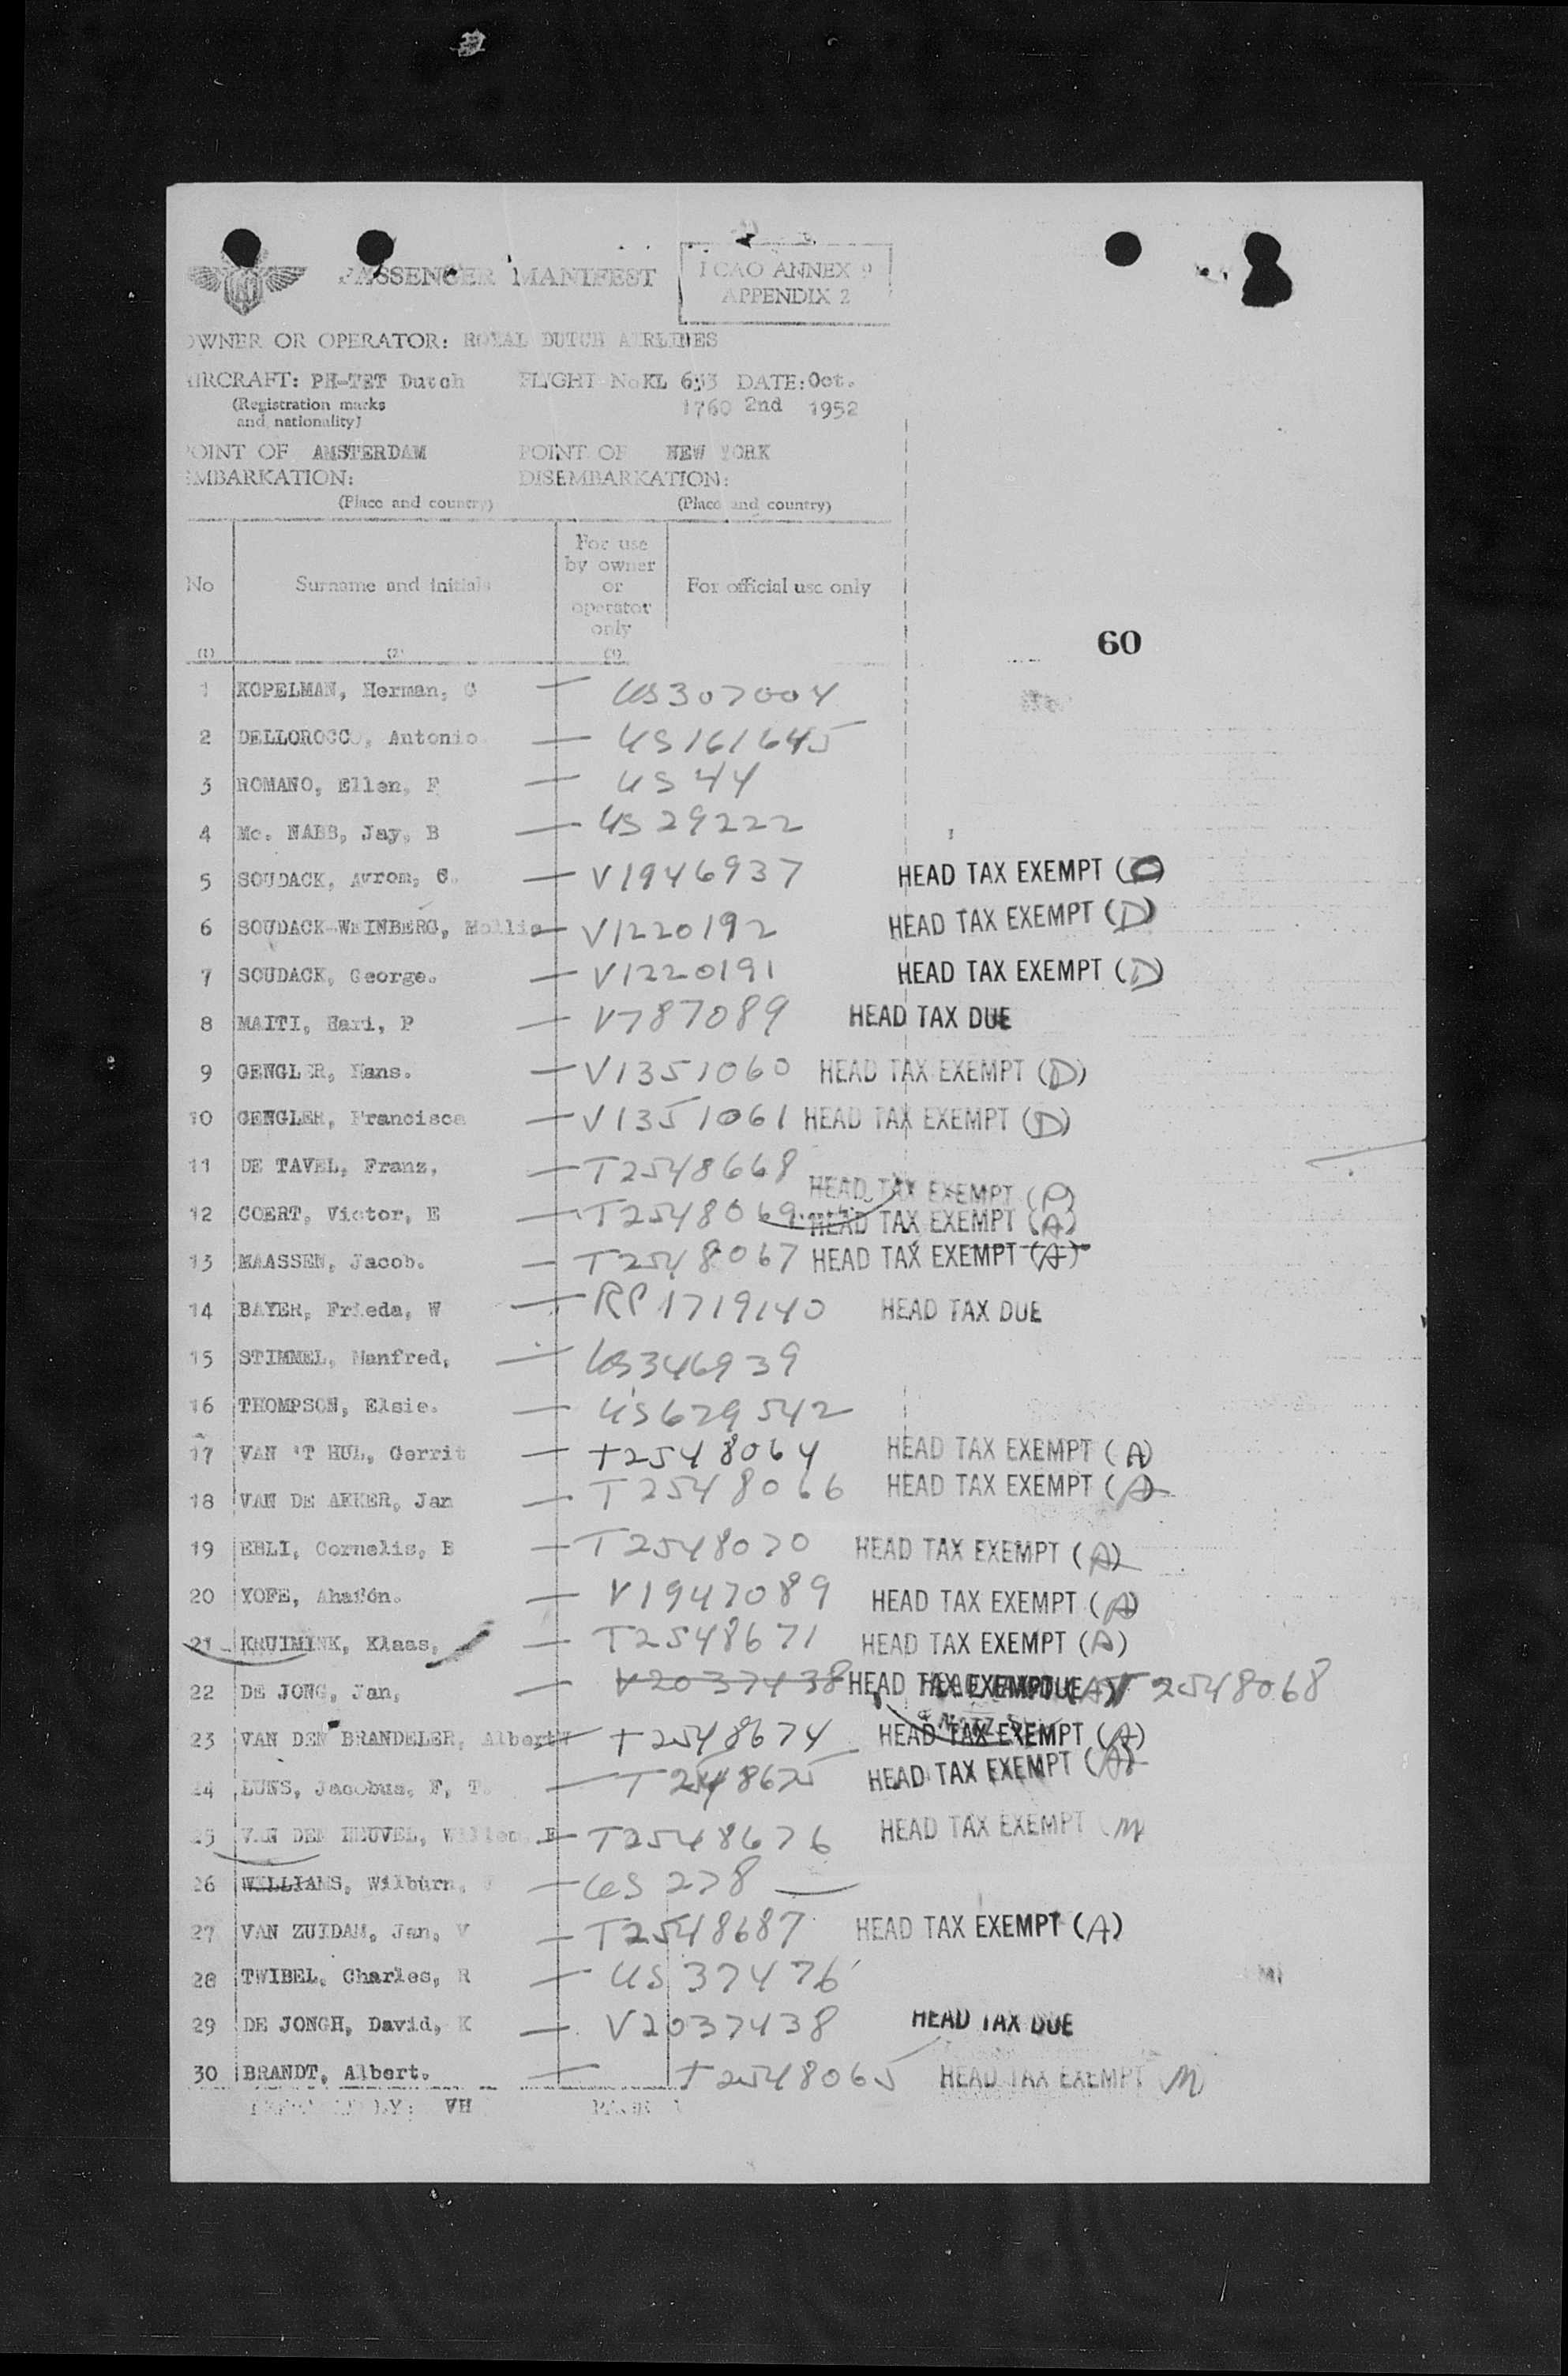 PASSENGER MANIFEST
ICAO ANNEX 9
APPENDIX 2
OWNER OR OPERATOR: ROYAL DUTCH AIRLINES
AIRCRAFT: PH-TET Dutch FLIGHT No KL 633 DATE: Oct.
(Registration marks 1760 2nd 1952
and nationality)
POINT OF AMSTERDAM POINT OF NEW YORK
EMBARKATION: DISEMBARKATION:
(Place and country) (Place and country)
No Surname and initials For use by owner or operator only For official use only
(1) (2) (3)
60
1 KOPELMAN, Herman, — US307004
2 DELLOROCCO, Antonio — US161645
3 ROMANO, Ellen, F — US44
4 Mc. NABB, Jay, B — US29222
5 SOUDACK, Avrom, — V1946937 HEAD TAX EXEMPT
6 SOUDACK-WEINBERG, Mollie — V1220192 HEAD TAX EXEMPT (D)
7 SOUDACK, George. — V1220191 HEAD TAX EXEMPT (D)
8 MAITI, Hari, P — V787089 HEAD TAX DUE
9 GENGLER, Hans. — V1351060 HEAD TAX EXEMPT (D)
10 GENGLER, Francisca — V1351061 HEAD TAX EXEMPT (D)
11 DE TAVEL, Franz, — T2548668 HEAD TAX EXEMPT
12 COERT, Victor, E — T2548069 HEAD TAX EXEMPT (A)
13 MAASSEN, Jacob. — T2548067 HEAD TAX EXEMPT (A)
14 BAYER, Frieda, W — RP1719140 HEAD TAX DUE
15 STIMMEL, Manfred, — US346939
16 THOMPSON, Elsie. — US629542
17 VAN 'T HUL, Gerrit — T2548064 HEAD TAX EXEMPT (A)
18 VAN DE AKKER, Jan — T2548066 HEAD TAX EXEMPT (A)
19 EBLI, Cornelis, B — T2548070 HEAD TAX EXEMPT (A)
20 YOFE, — V1947089 HEAD TAX EXEMPT (A)
21 KRUIMINK, Klaas, — T2548671 HEAD TAX EXEMPT (A)
22 DE JONG, Jan, — V2037438 HEAD TAX EXEMPT (A) T2548068
23 VAN DEN BRANDELER, Albert — T2548674 HEAD TAX EXEMPT (A)
24 LUNS, Jacobus, F, T. — T2548675 HEAD TAX EXEMPT (A)
25 VAN DEN HEUVEL, Willem, — T2548676 HEAD TAX EXEMPT (M
26 WILLIAMS, Wilburn, — US278 —
27 VAN ZUIDAM, Jan, V — T2548687 HEAD TAX EXEMPT (A)
28 TWIBEL, Charles, R — US37476
29 DE JONGH, David, K — V2037438 HEAD TAX DUE
30 BRANDT, Albert. — T2548065 HEAD TAX EXEMPT (M)
BY: VH